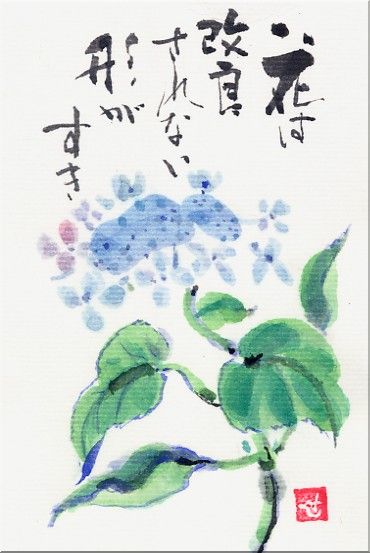 花は
改良
されない
形が
すき